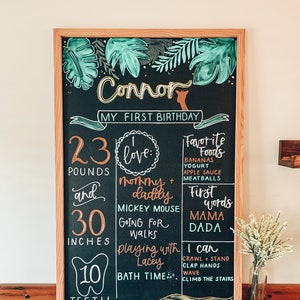 Connor
MY FIRST BIRTHDAY
23
POUNDS
and
30
INCHES
10
TEETH
love:
mommy +
daddy
MICKEY MOUSE
GOING FOR
WALKS
playing with
Lacey
BATH TIME
Favorite
Foods
BANANAS
YOGURT
APPLE SAUCE
MEATBALLS
First
words
MAMA
DADA
I can
CRAWL + STAND
CLAP HANDS
WAVE
CLIMB THE STAIRS